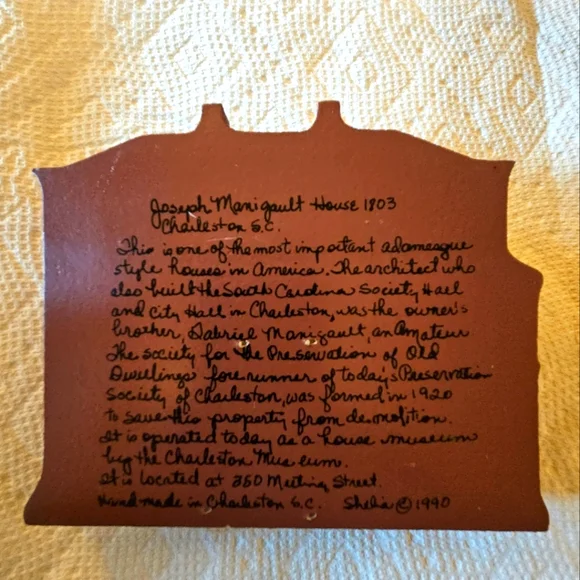 Joseph Manigault House 1803
Charleston S.C.
This is one of the most important adamesque
style houses in America. The architect who
also built the South Carolina Society Hall
and City Hall in Charleston, was the owner's
brother, Gabriel Manigault, an amateur
The society for the Preservation of Old
Dwellings fore runner of today's Preservation
Society of Charleston, was formed in 1920
to save this property from demolition.
It is operated today as a house museum
by the Charleston Museum.
It is located at 350 Meeting Street.
Hand made in Charleston S.C. Shelia © 1990